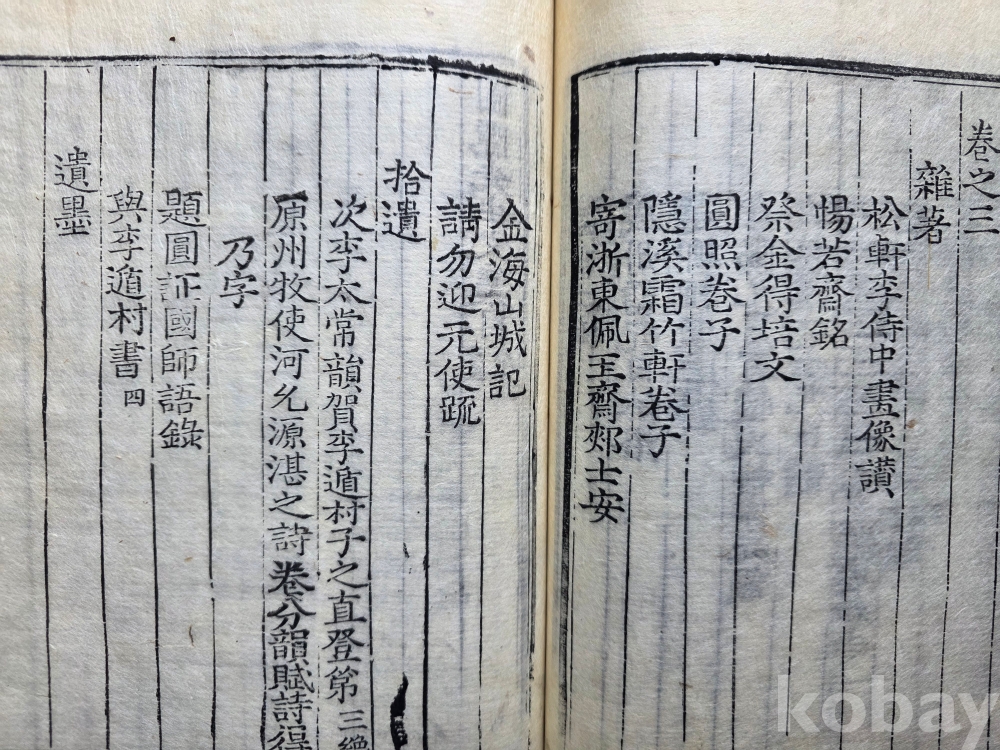 卷之三
雜著
松軒李侍中畫像讃
惕若齋銘
祭金得培文
圓照卷子
隱溪霜竹軒卷子
寄浙東佩玉齋郯士安
金海山城記
請勿迎元使䟽
拾遺
次李太常韻賀李遁村子之直登第三絶
原州牧使河允源湛之詩卷分韻賦詩得
乃字
題圓証國師語錄
與李遁村書四
遺墨
kobay